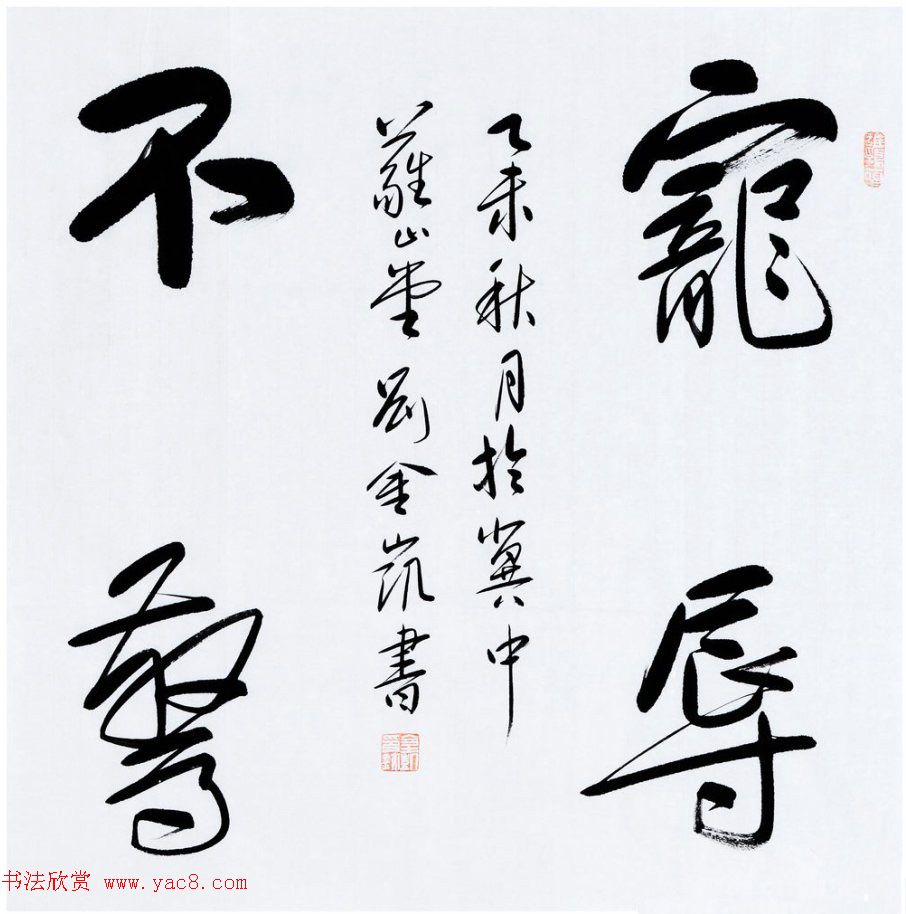 寵辱
不驚
乙未秋月於冀中
蘿山堂劉金凱書
书法欣赏 www.yac8.com